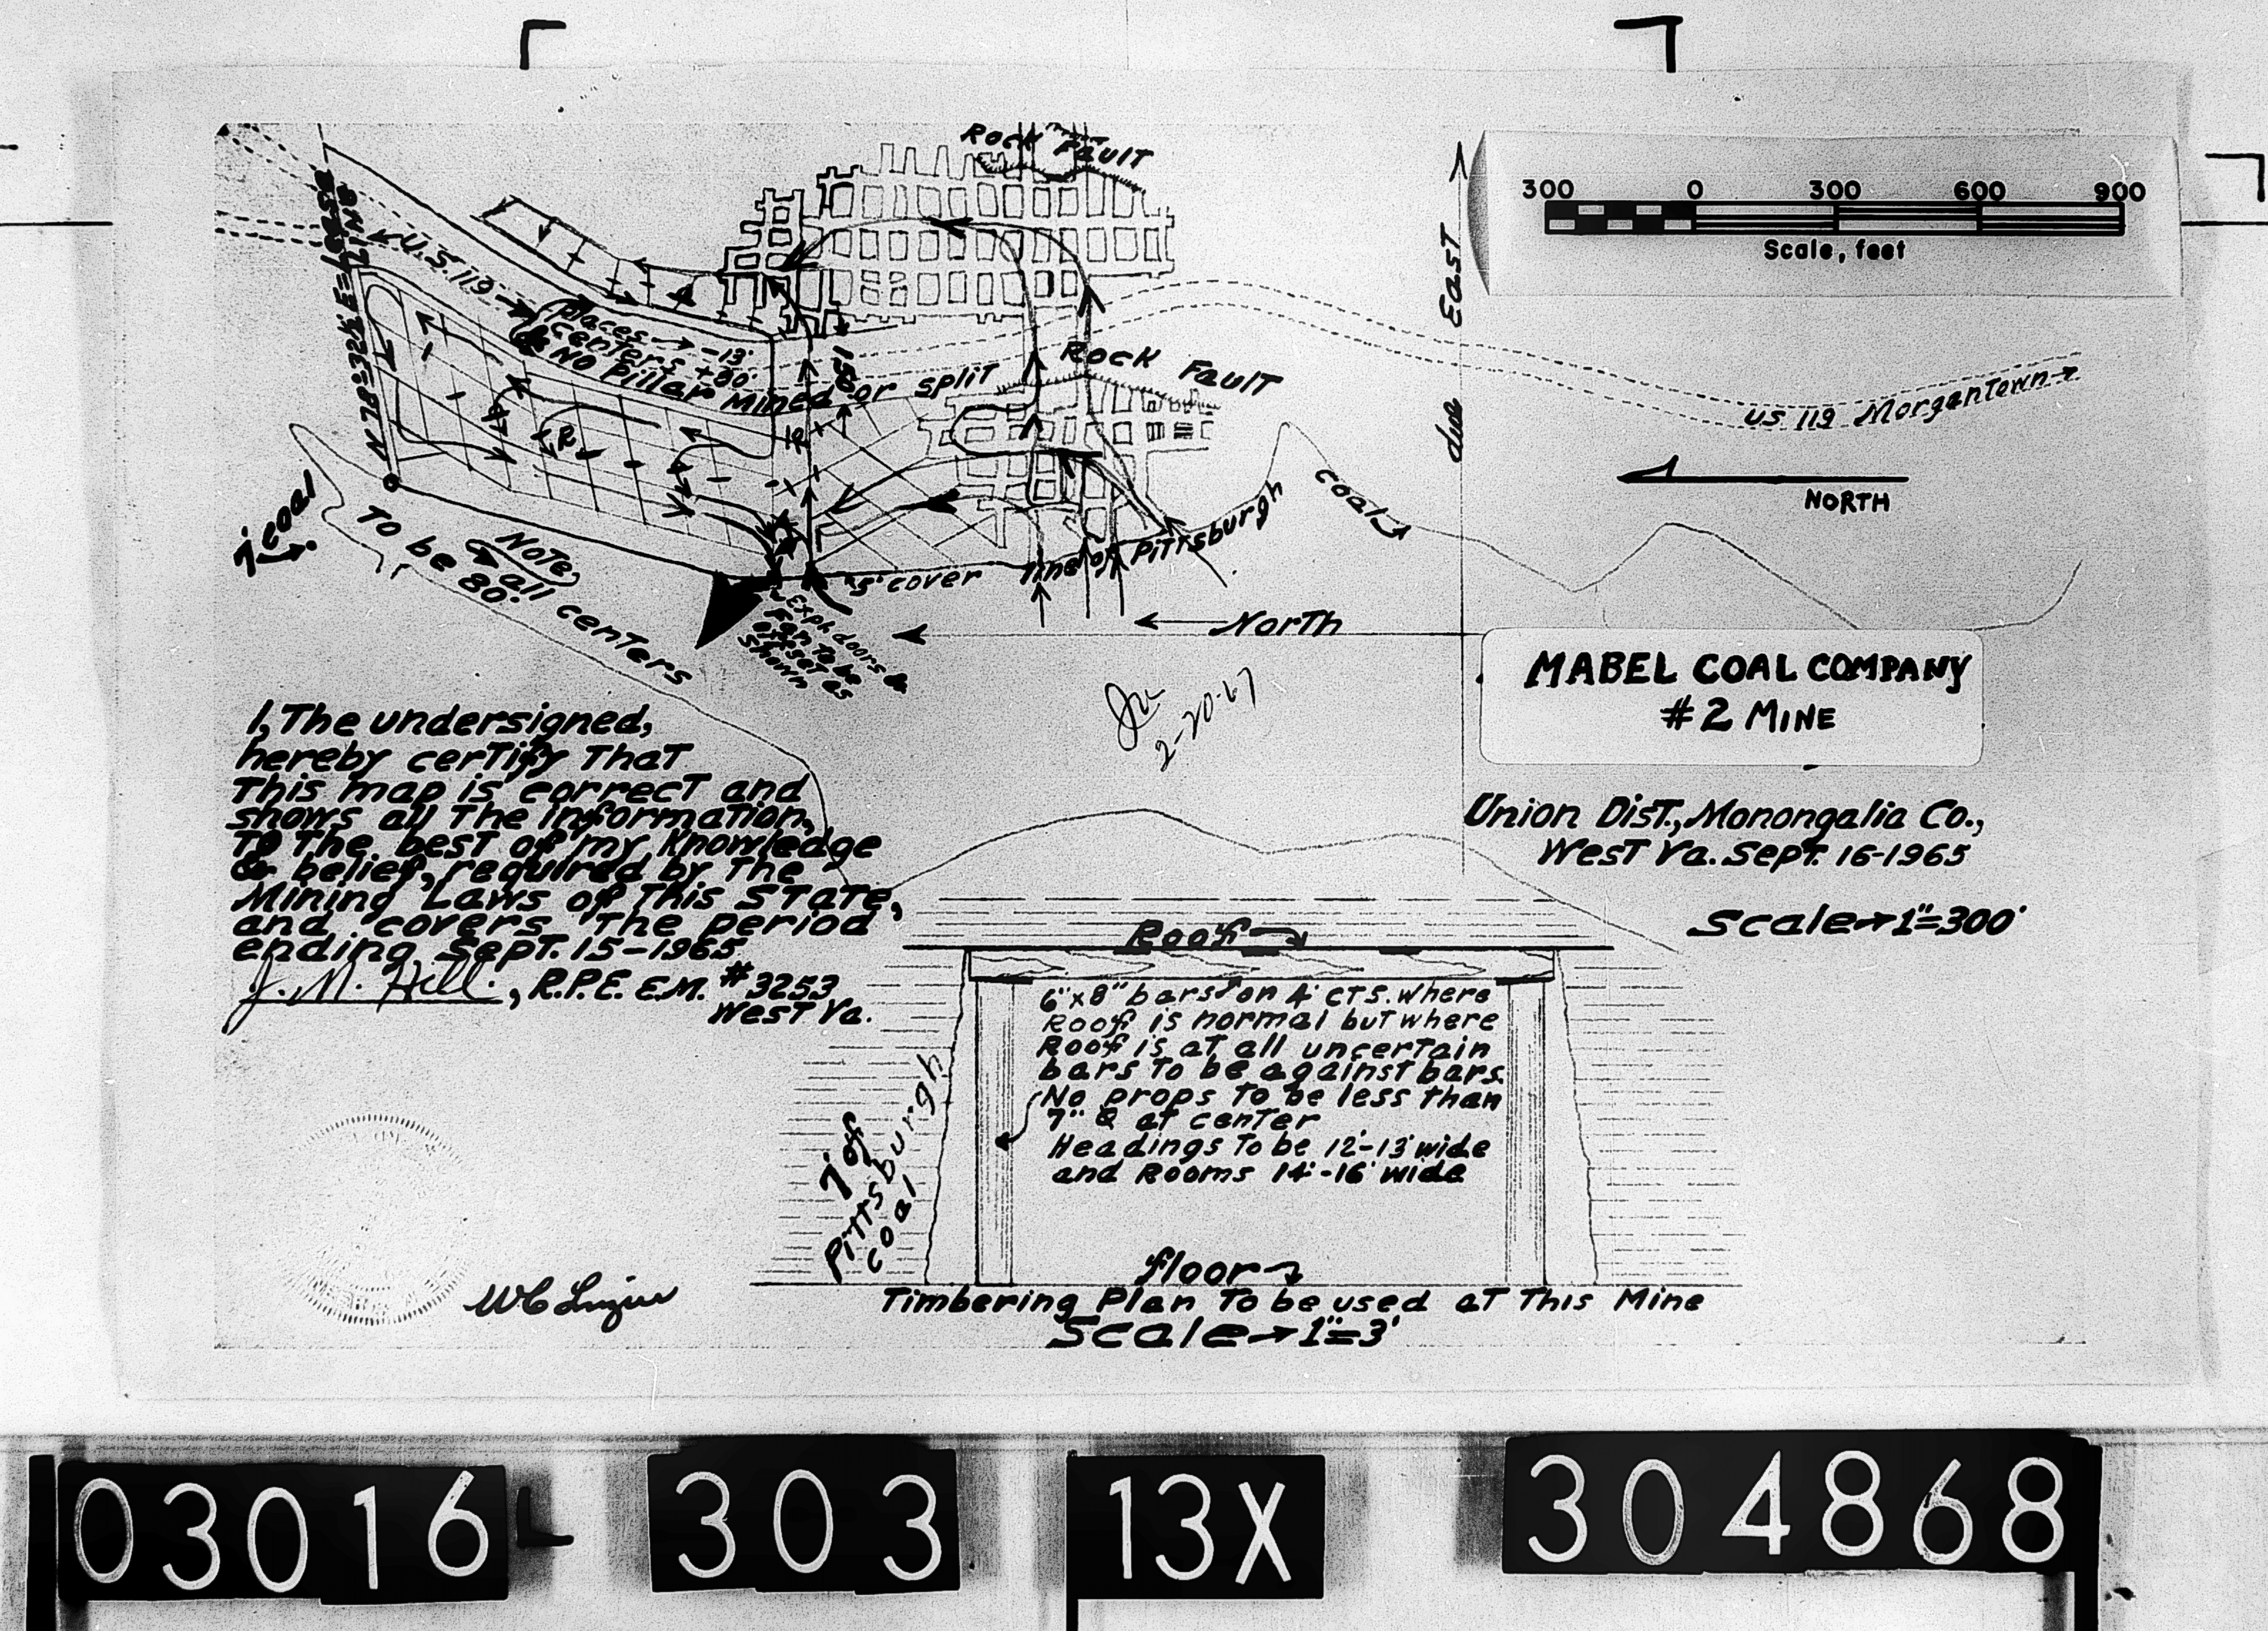 Rock Fault
300 0 300 600 900
Scale, feet
N 78°-32½' E = Lease Line
U.S. 119
Places → -13'
Centers +80'
& No Pillar Mined or split
150'
due East
Rock Fault
US 119 Morgantown
NORTH
R
R
7' coal
Note,
all centers
To be 80'.
5' cover line of Pittsburgh coal
Expl. doors &
Fan to be
offset as
shown
North
MABEL COAL COMPANY
# 2 MINE
2-20-67
I, The undersigned,
hereby certify That
This map is correct and
shows all The information,
To The best of my Knowledge
& belief, required by The
Mining Laws of This State,
and covers The period
ending Sept. 15-1965.
J. M. Hill., R.P.E. E.M. #3253
West Va.
Union Dist., Monongalia Co.,
West Va. Sept. 16-1965
Scale→1"=300'
Roof
6"x8" bars on 4' cts. where
Roof is normal but where
Roof is at all uncertain
bars To be against bars.
No props To be less than
7" at center
Headings To be 12'-13' wide
and Rooms 14'-16' wide
7' of
Pittsburgh
coal
floor
Timbering Plan To be used at This Mine
Scale→1"=3'
03016 303 13X 304868